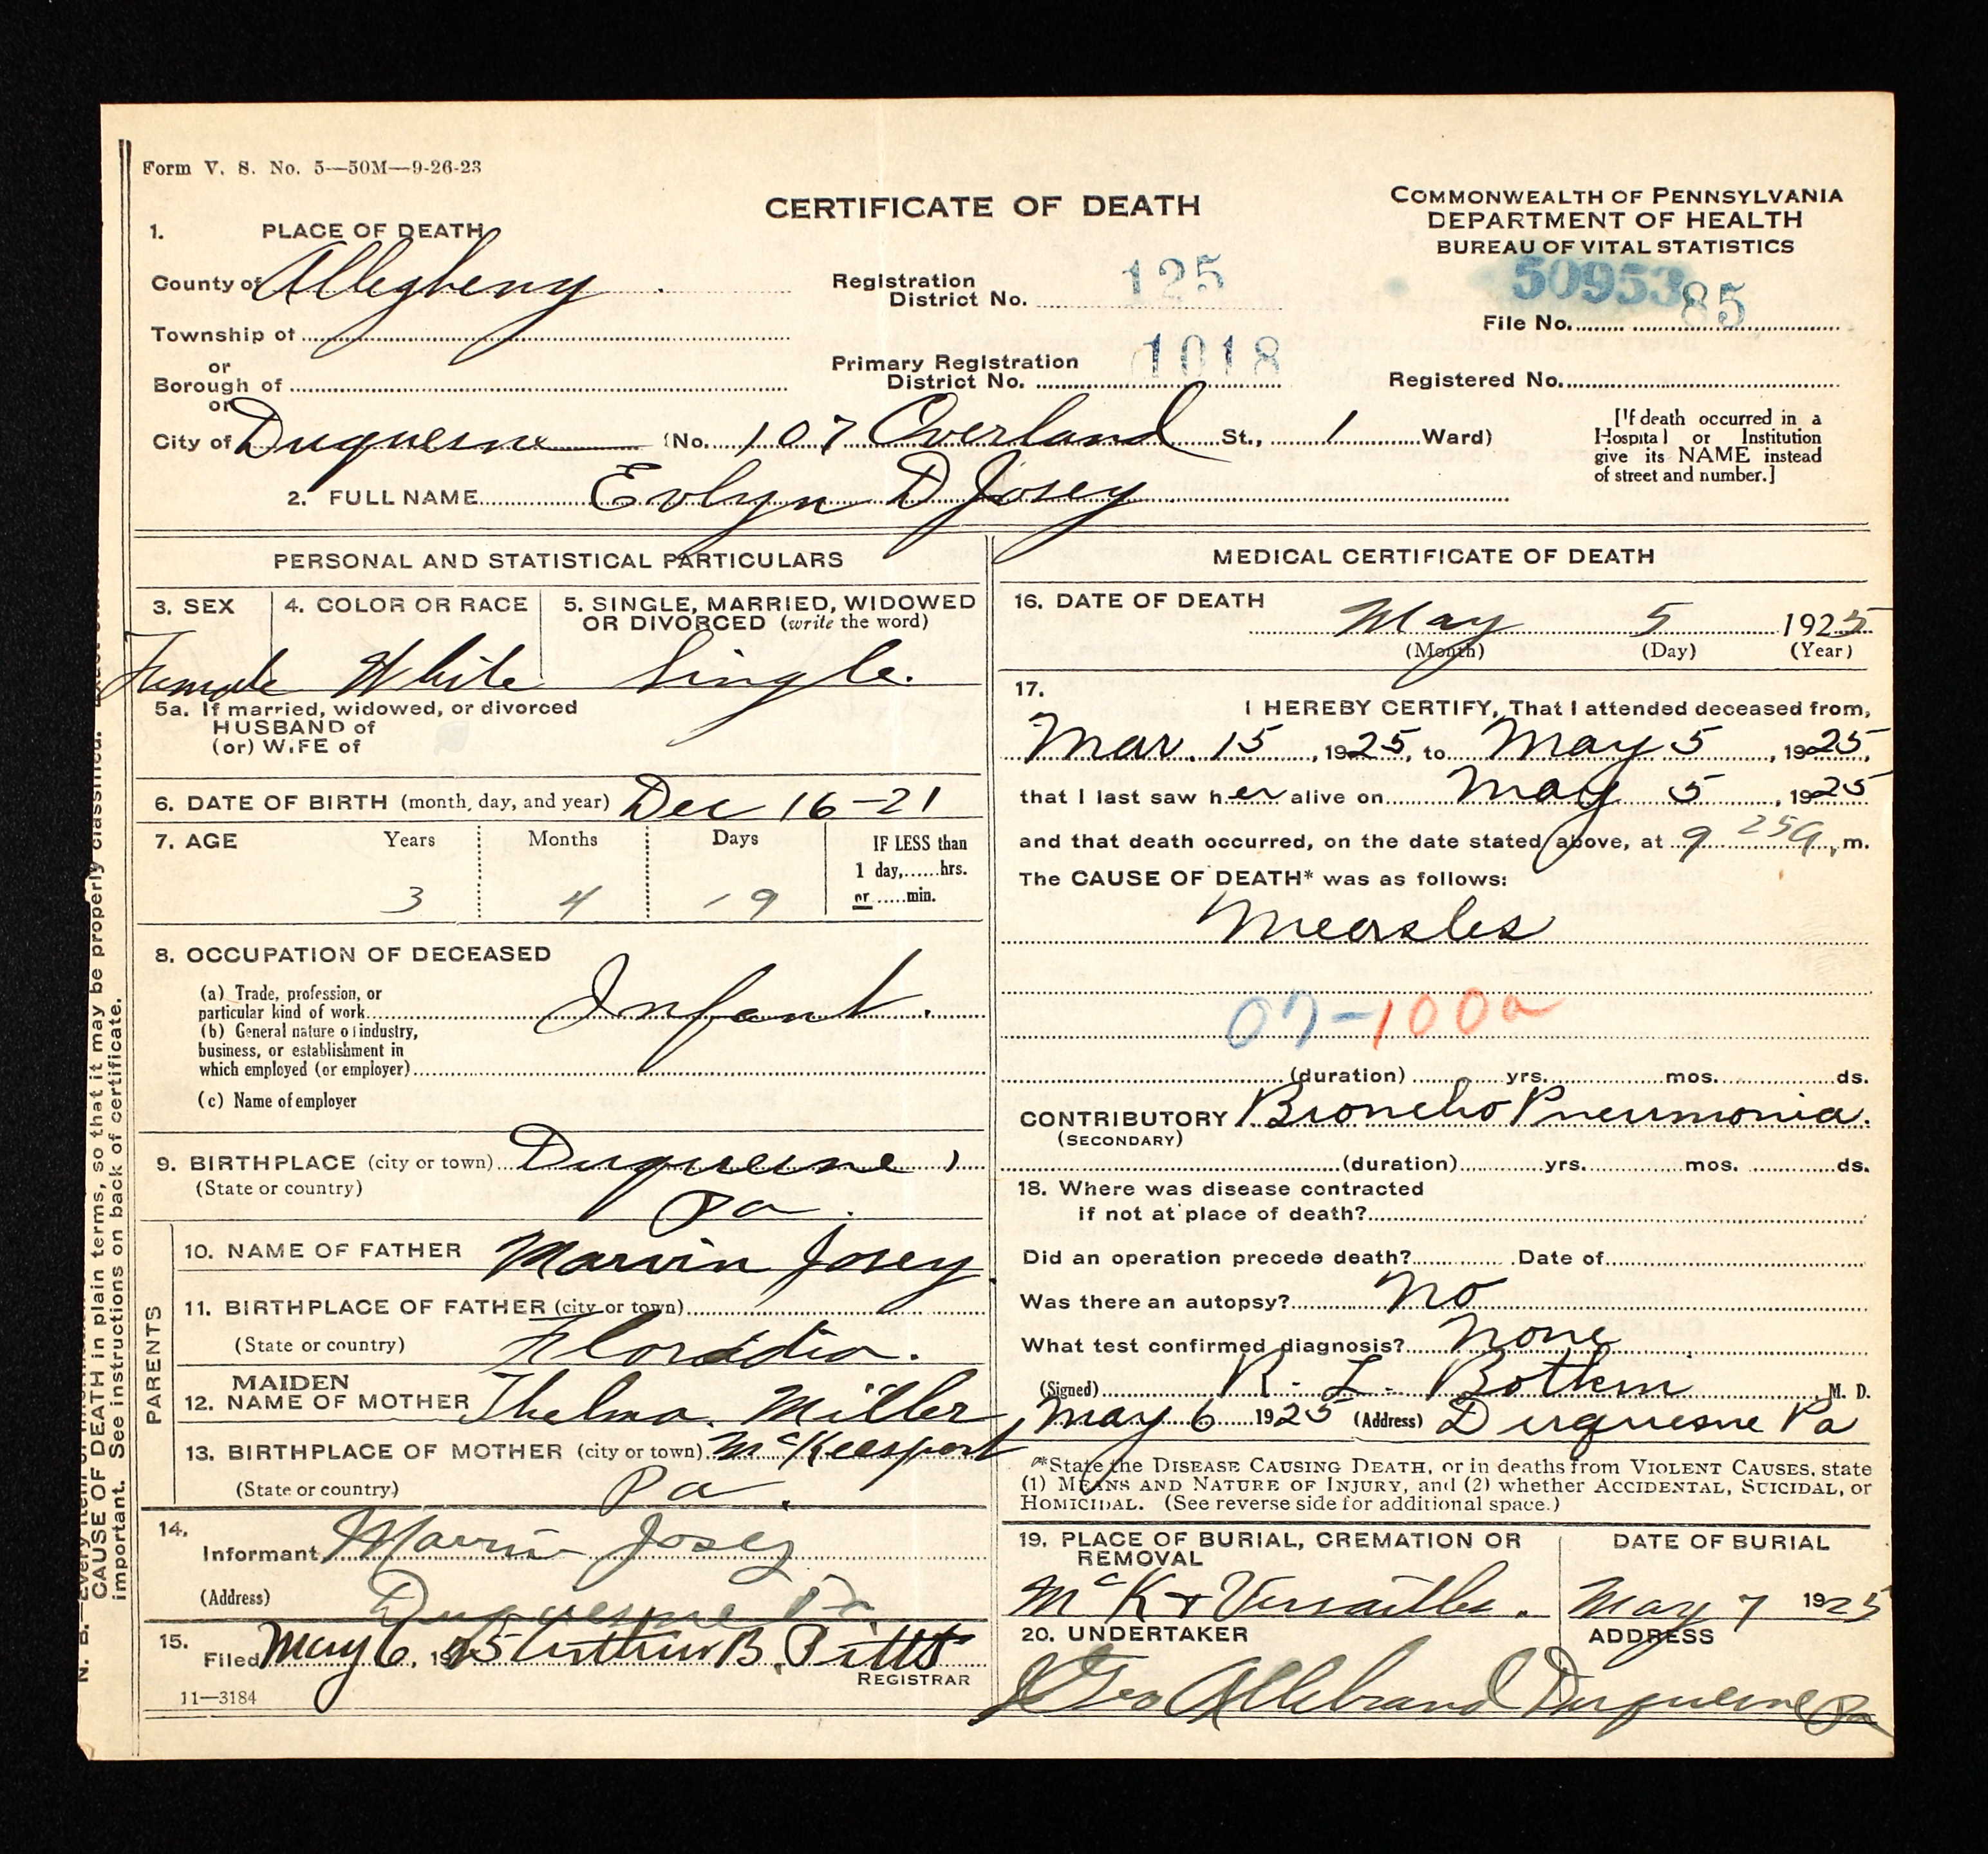 Form V. S. No. 5—50M—9-26-23
CERTIFICATE OF DEATH
COMMONWEALTH OF PENNSYLVANIA
DEPARTMENT OF HEALTH
BUREAU OF VITAL STATISTICS
1. PLACE OF DEATH
County of Allegheny
Registration District No. 125
50953
File No. 85
Township of
or
Borough of
Primary Registration District No. 1018
Registered No.
or
City of Duquesne (No. 107 Overland St., 1 Ward)
[If death occurred in a
Hospital or Institution
give its NAME instead
of street and number.]
2. FULL NAME Evlyn D Josey
PERSONAL AND STATISTICAL PARTICULARS
3. SEX
4. COLOR OR RACE
5. SINGLE, MARRIED, WIDOWED
OR DIVORCED (write the word)
Female White Single.
5a. If married, widowed, or divorced
HUSBAND of
(or) WIFE of
6. DATE OF BIRTH (month, day, and year) Dec 16-21
7. AGE Years Months Days
3 4 19
IF LESS than
1 day,......hrs.
or......min.
8. OCCUPATION OF DECEASED
(a) Trade, profession, or
particular kind of work Infant.
(b) General nature of industry,
business, or establishment in
which employed (or employer)
(c) Name of employer
9. BIRTHPLACE (city or town) Duquesne,
(State or country) Pa.
PARENTS
10. NAME OF FATHER Marvin Josey
11. BIRTHPLACE OF FATHER (city or town)
(State or country) Floradia.
12. MAIDEN NAME OF MOTHER Thelma. Miller
13. BIRTHPLACE OF MOTHER (city or town) McKeesport
(State or country) Pa.
14. Informant Marvin Josey
(Address) Duquesne Pa.
15. Filed May 6, 1925 Arthur B. Pitts
REGISTRAR
11—3184
MEDICAL CERTIFICATE OF DEATH
16. DATE OF DEATH
May 5 1925
(Month) (Day) (Year)
17. I HEREBY CERTIFY, That I attended deceased from,
Mar. 15, 1925, to May 5, 1925,
that I last saw her alive on May 5, 1925
and that death occurred, on the date stated above, at 9 25 a. m.
The CAUSE OF DEATH* was as follows:
Measles
07-100a
(duration) yrs. mos. ds.
CONTRIBUTORY Broncho Pneumonia.
(SECONDARY)
(duration) yrs. mos. ds.
18. Where was disease contracted
if not at place of death?
Did an operation precede death? Date of
Was there an autopsy? No
What test confirmed diagnosis? None
(Signed) R. L. Botkin M. D.
May 6 1925 (Address) Duquesne Pa
*State the DISEASE CAUSING DEATH, or in deaths from VIOLENT CAUSES, state
(1) MEANS AND NATURE OF INJURY, and (2) whether ACCIDENTAL, SUICIDAL, or
HOMICIDAL. (See reverse side for additional space.)
19. PLACE OF BURIAL, CREMATION OR
REMOVAL
McK & Versailles.
DATE OF BURIAL
May 7 1925
20. UNDERTAKER
ADDRESS
Geo Allebrand Duquesne Pa
CAUSE OF DEATH in plain terms, so that it may be properly classified.
important. See instructions on back of certificate.